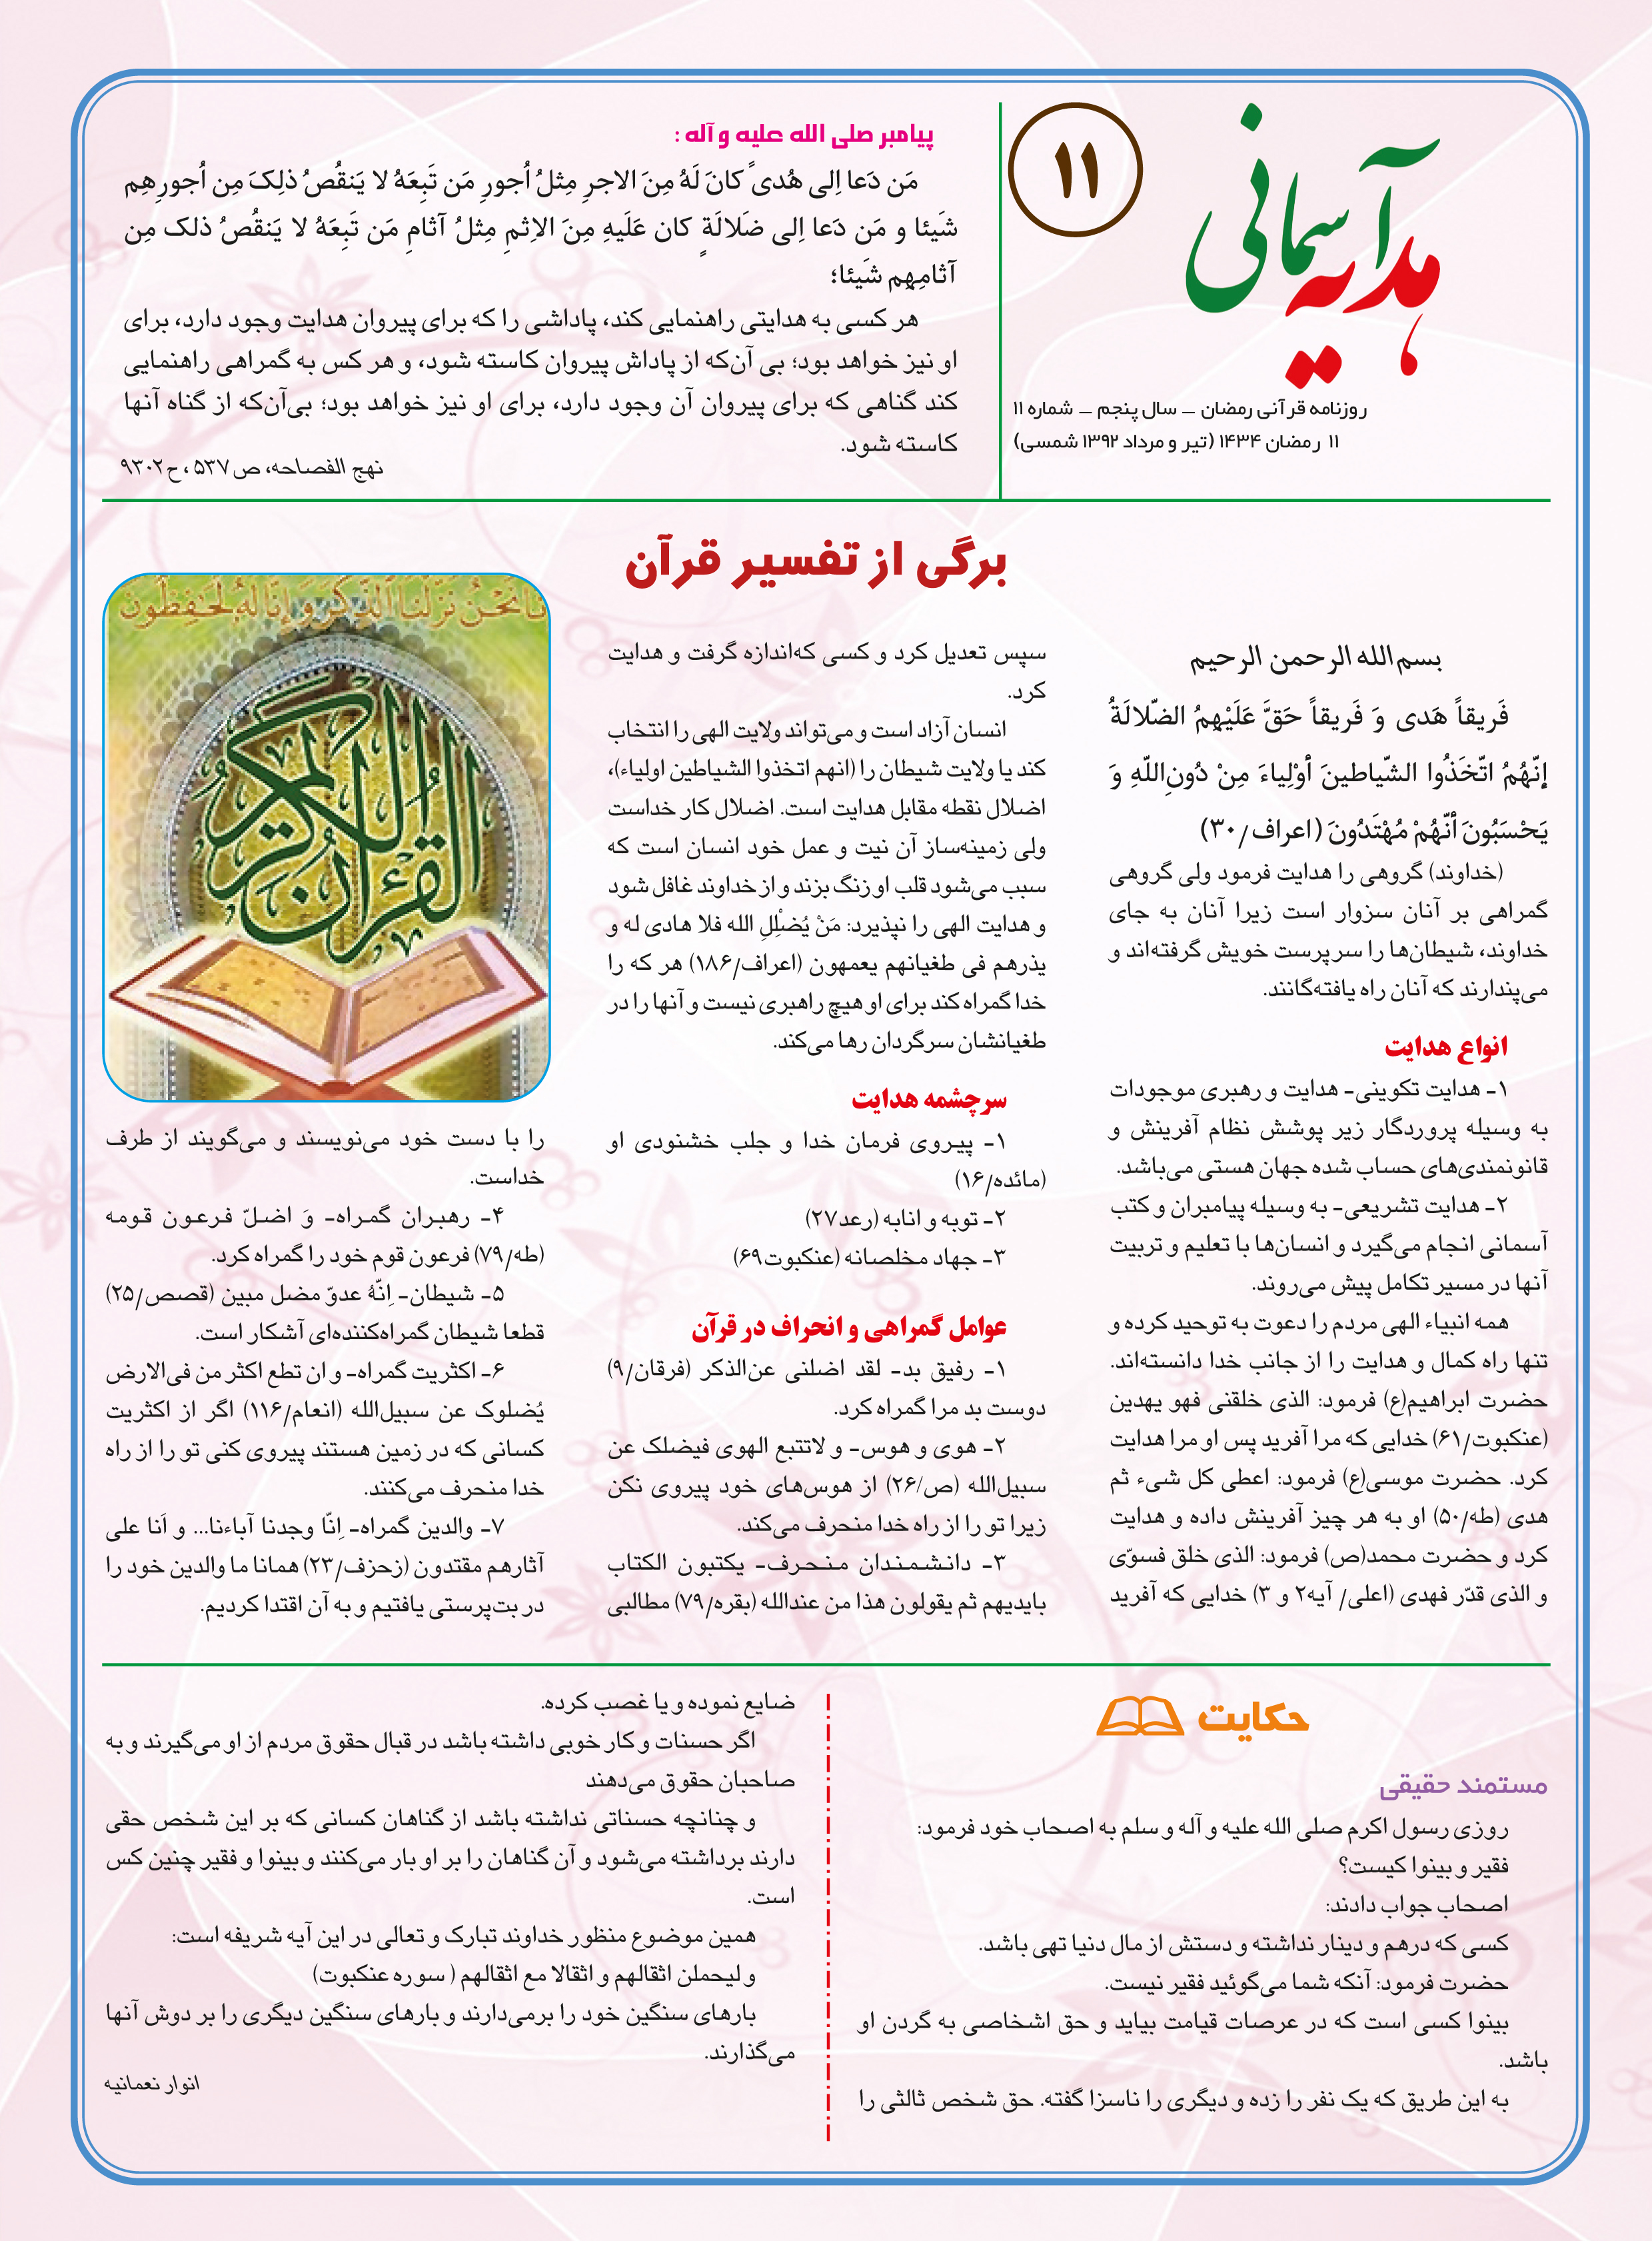 هدایه آسمانی
۱۱
روزنامه قرآنی رمضان – سال پنجم – شماره ۱۱
۱۱ رمضان ۱۴۳۴ (تیر و مرداد ۱۳۹۲ شمسی)
پیامبر صلی الله علیه و آله :
مَن دَعا اِلی هُدیً کانَ لَهُ مِنَ الاجرِ مِثلُ اُجورِ مَن تَبِعَهُ لا یَنقُصُ ذلِکَ مِن اُجورِهِم
شَیئا و مَن دَعا اِلی ضَلالَةٍ کان عَلَیهِ مِنَ الاِثمِ مِثلُ آثامِ مَن تَبِعَهُ لا یَنقُصُ ذلک مِن
آثامِهِم شَیئا؛
هر کسی به هدایتی راهنمایی کند، پاداشی را که برای پیروان هدایت وجود دارد، برای
او نیز خواهد بود؛ بی آن‌که از پاداش پیروان کاسته شود، و هر کس به گمراهی راهنمایی
کند گناهی که برای پیروان آن وجود دارد، برای او نیز خواهد بود؛ بی‌آن‌که از گناه آنها
کاسته شود.
نهج الفصاحه، ص ۵۳۷ ، ح ۹۳۰۲
برگی از تفسیر قرآن
بسم الله الرحمن الرحیم
فَریقاً هَدی وَ فَریقاً حَقَّ عَلَیْهِمُ الضّلالَةُ
إنّهُمُ اتّخَذُوا الشّیاطینَ أوْلِیاءَ مِنْ دُونِ‌اللّهِ وَ
یَحْسَبُونَ أنّهُمْ مُهْتَدُونَ (اعراف/۳۰)
(خداوند) گروهی را هدایت فرمود ولی گروهی
گمراهی بر آنان سزوار است زیرا آنان به جای
خداوند، شیطان‌ها را سرپرست خویش گرفته‌اند و
می‌پندارند که آنان راه یافته‌گانند.
انواع هدایت
۱- هدایت تکوینی- هدایت و رهبری موجودات
به وسیله پروردگار زیر پوشش نظام آفرینش و
قانونمندی‌های حساب شده جهان هستی می‌باشد.
۲- هدایت تشریعی- به وسیله پیامبران و کتب
آسمانی انجام می‌گیرد و انسان‌ها با تعلیم و تربیت
آنها در مسیر تکامل پیش می‌روند.
همه انبیاء الهی مردم را دعوت به توحید کرده و
تنها راه کمال و هدایت را از جانب خدا دانسته‌اند.
حضرت ابراهیم(ع) فرمود: الذی خلقنی فهو یهدین
(عنکبوت/۶۱) خدایی که مرا آفرید پس او مرا هدایت
کرد. حضرت موسی(ع) فرمود: اعطی کل شیء ثم
هدی (طه/۵۰) او به هر چیز آفرینش داده و هدایت
کرد و حضرت محمد(ص) فرمود: الذی خلق فسوّی
و الذی قدّر فهدی (اعلی/ آیه۲ و ۳) خدایی که آفرید
سپس تعدیل کرد و کسی که‌اندازه گرفت و هدایت
کرد.
انسان آزاد است و می‌تواند ولایت الهی را انتخاب
کند یا ولایت شیطان را (انهم اتخذوا الشیاطین اولیاء)،
اضلال نقطه مقابل هدایت است. اضلال کار خداست
ولی زمینه‌ساز آن نیت و عمل خود انسان است که
سبب می‌شود قلب او زنگ بزند و از خداوند غافل شود
و هدایت الهی را نپذیرد: مَنْ یُضلِْلِ الله فلا هادی له و
یذرهم فی طغیانهم یعمهون (اعراف/۱۸۶) هر که را
خدا گمراه کند برای او هیچ راهبری نیست و آنها را در
طغیانشان سرگردان رها می‌کند.
سرچشمه هدایت
۱- پیروی فرمان خدا و جلب خشنودی او
(مائده/۱۶)
۲- توبه و انابه (رعد۲۷)
۳- جهاد مخلصانه (عنکبوت۶۹)
عوامل گمراهی و انحراف در قرآن
۱- رفیق بد- لقد اضلنی عن‌الذکر (فرقان/۹)
دوست بد مرا گمراه کرد.
۲- هوی و هوس- و لاتتبع الهوی فیضلک عن
سبیل‌الله (ص/۲۶) از هوس‌های خود پیروی نکن
زیرا تو را از راه خدا منحرف می‌کند.
۳- دانشمندان منحرف- یکتبون الکتاب
بایدیهم ثم یقولون هذا من عندالله (بقره/۷۹) مطالبی
نا نحن نزلنا الذکر و إنا له لحافظون
القرآن الکریم
را با دست خود می‌نویسند و می‌گویند از طرف
خداست.
۴- رهبران گمراه- وَ اضلّ فرعون قومه
(طه/۷۹) فرعون قوم خود را گمراه کرد.
۵- شیطان- اِنّهُ عدوّ مضل مبین (قصص/۲۵)
قطعا شیطان گمراه‌کننده‌ای آشکار است.
۶- اکثریت گمراه- و ان تطع اکثر من فی‌الارض
یُضلوک عن سبیل‌الله (انعام/۱۱۶) اگر از اکثریت
کسانی که در زمین هستند پیروی کنی تو را از راه
خدا منحرف می‌کنند.
۷- والدین گمراه- اِنّا وجدنا آباءنا... و اَنا علی
آثارهم مقتدون (زحزف/۲۳) همانا ما والدین خود را
در بت‌پرستی یافتیم و به آن اقتدا کردیم.
حکایت
مستمند حقیقی
روزی رسول اکرم صلی الله علیه و آله و سلم به اصحاب خود فرمود:
فقیر و بینوا کیست؟
اصحاب جواب دادند:
کسی که درهم و دینار نداشته و دستش از مال دنیا تهی باشد.
حضرت فرمود: آنکه شما می‌گوئید فقیر نیست.
بینوا کسی است که در عرصات قیامت بیاید و حق اشخاصی به گردن او
باشد.
به این طریق که یک نفر را زده و دیگری را ناسزا گفته. حق شخص ثالثی را
ضایع نموده و یا غصب کرده.
اگر حسنات و کار خوبی داشته باشد در قبال حقوق مردم از او می‌گیرند و به
صاحبان حقوق می‌دهند
و چنانچه حسناتی نداشته باشد از گناهان کسانی که بر این شخص حقی
دارند برداشته می‌شود و آن گناهان را بر او بار می‌کنند و بینوا و فقیر چنین کس
است.
همین موضوع منظور خداوند تبارک و تعالی در این آیه شریفه است:
و لیحملن اثقالهم و اثقالا مع اثقالهم ( سوره عنکبوت)
بارهای سنگین خود را برمی‌دارند و بارهای سنگین دیگری را بر دوش آنها
می‌گذارند.
انوار نعمانیه